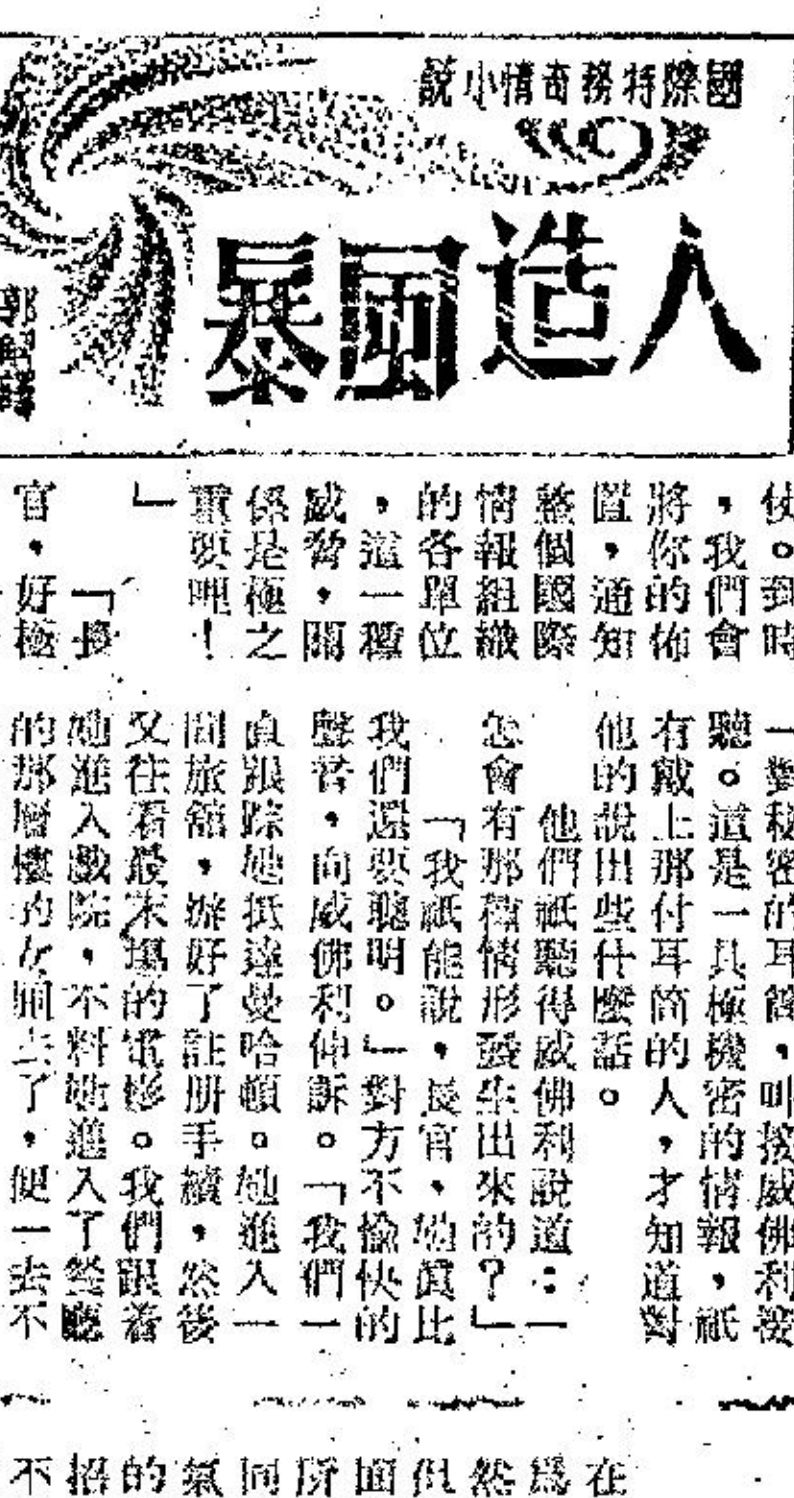 國際特務奇情小說
人造風暴
使。到時
，我們會
將你的佈
置，通知
整個國際
情報組織
的各單位
，這一種
威脅，關
係是極之
重要呢！
」
「長
官，好極
一對秘密的耳筒，叫接威佛利接
聽。這是一具極機密的情報，祇
有戴上那付耳筒的人，才知道對
他的說出些什麼話。
他們祇聽得威佛利說道：—
怎會有那種情形發生出來的？」
「我祇能說，長官，她眞比
我們還要聰明。」對方不愉快的
聲音，向威佛利伸訴。「我們一
直跟踪她抵達曼哈頓。她進入一
間旅館，辦好了註册手續，然後
又往看最末場的電影。我們跟着
她進入戲院，不料她進入了餐廳
的那層樓的女厠去了，便一去不
在
爲
然
但
面
所
同
氣
的
招
不